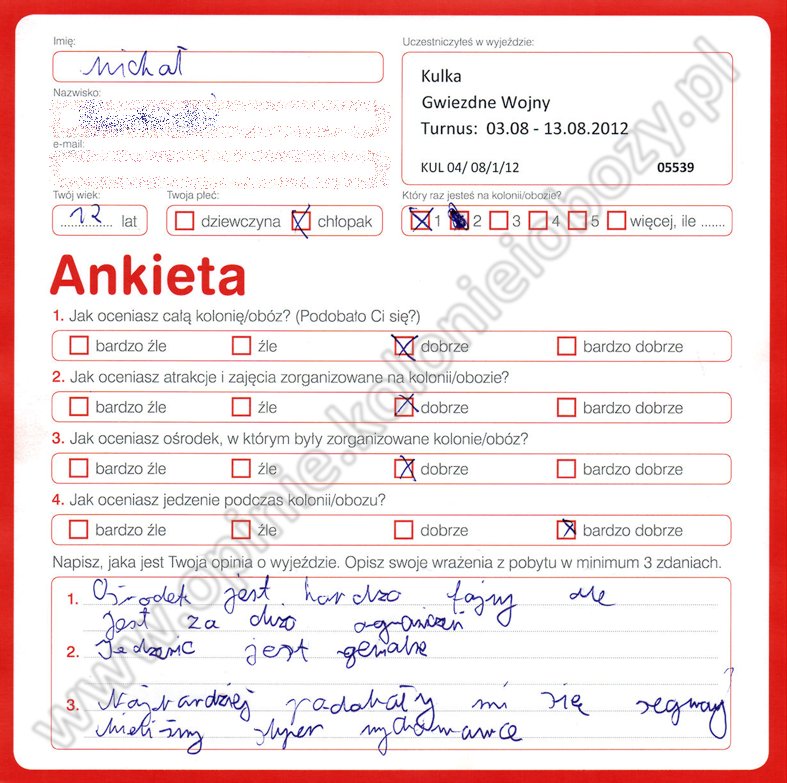 Imię:
Michał
Uczestniczyłeś w wyjeździe:
Kulka
Gwiezdne Wojny
Turnus: 03.08 - 13.08.2012
KUL 04/ 08/1/12 05539
Nazwisko:
e-mail:
Twój wiek:
12 lat
Twoja płeć:
dziewczyna chłopak
Który raz jesteś na kolonii/obozie?
1 2 3 4 5 więcej, ile .......
Ankieta
1. Jak oceniasz całą kolonię/obóz? (Podobało Ci się?)
bardzo źle źle dobrze bardzo dobrze
2. Jak oceniasz atrakcje i zajęcia zorganizowane na kolonii/obozie?
bardzo źle źle dobrze bardzo dobrze
3. Jak oceniasz ośrodek, w którym były zorganizowane kolonie/obóz?
bardzo źle źle dobrze bardzo dobrze
4. Jak oceniasz jedzenie podczas kolonii/obozu?
bardzo źle źle dobrze bardzo dobrze
Napisz, jaka jest Twoja opinia o wyjeździe. Opisz swoje wrażenia z pobytu w minimum 3 zdaniach.
1. Ośrodek jest bardzo fajny ale
jest za dużo ograniczeń
2. Jedzenie jest genialne
3. Najbardziej podobały mi się segway
Mieliśmy super wychowawce
www.opinie.kolonieiobozy.pl